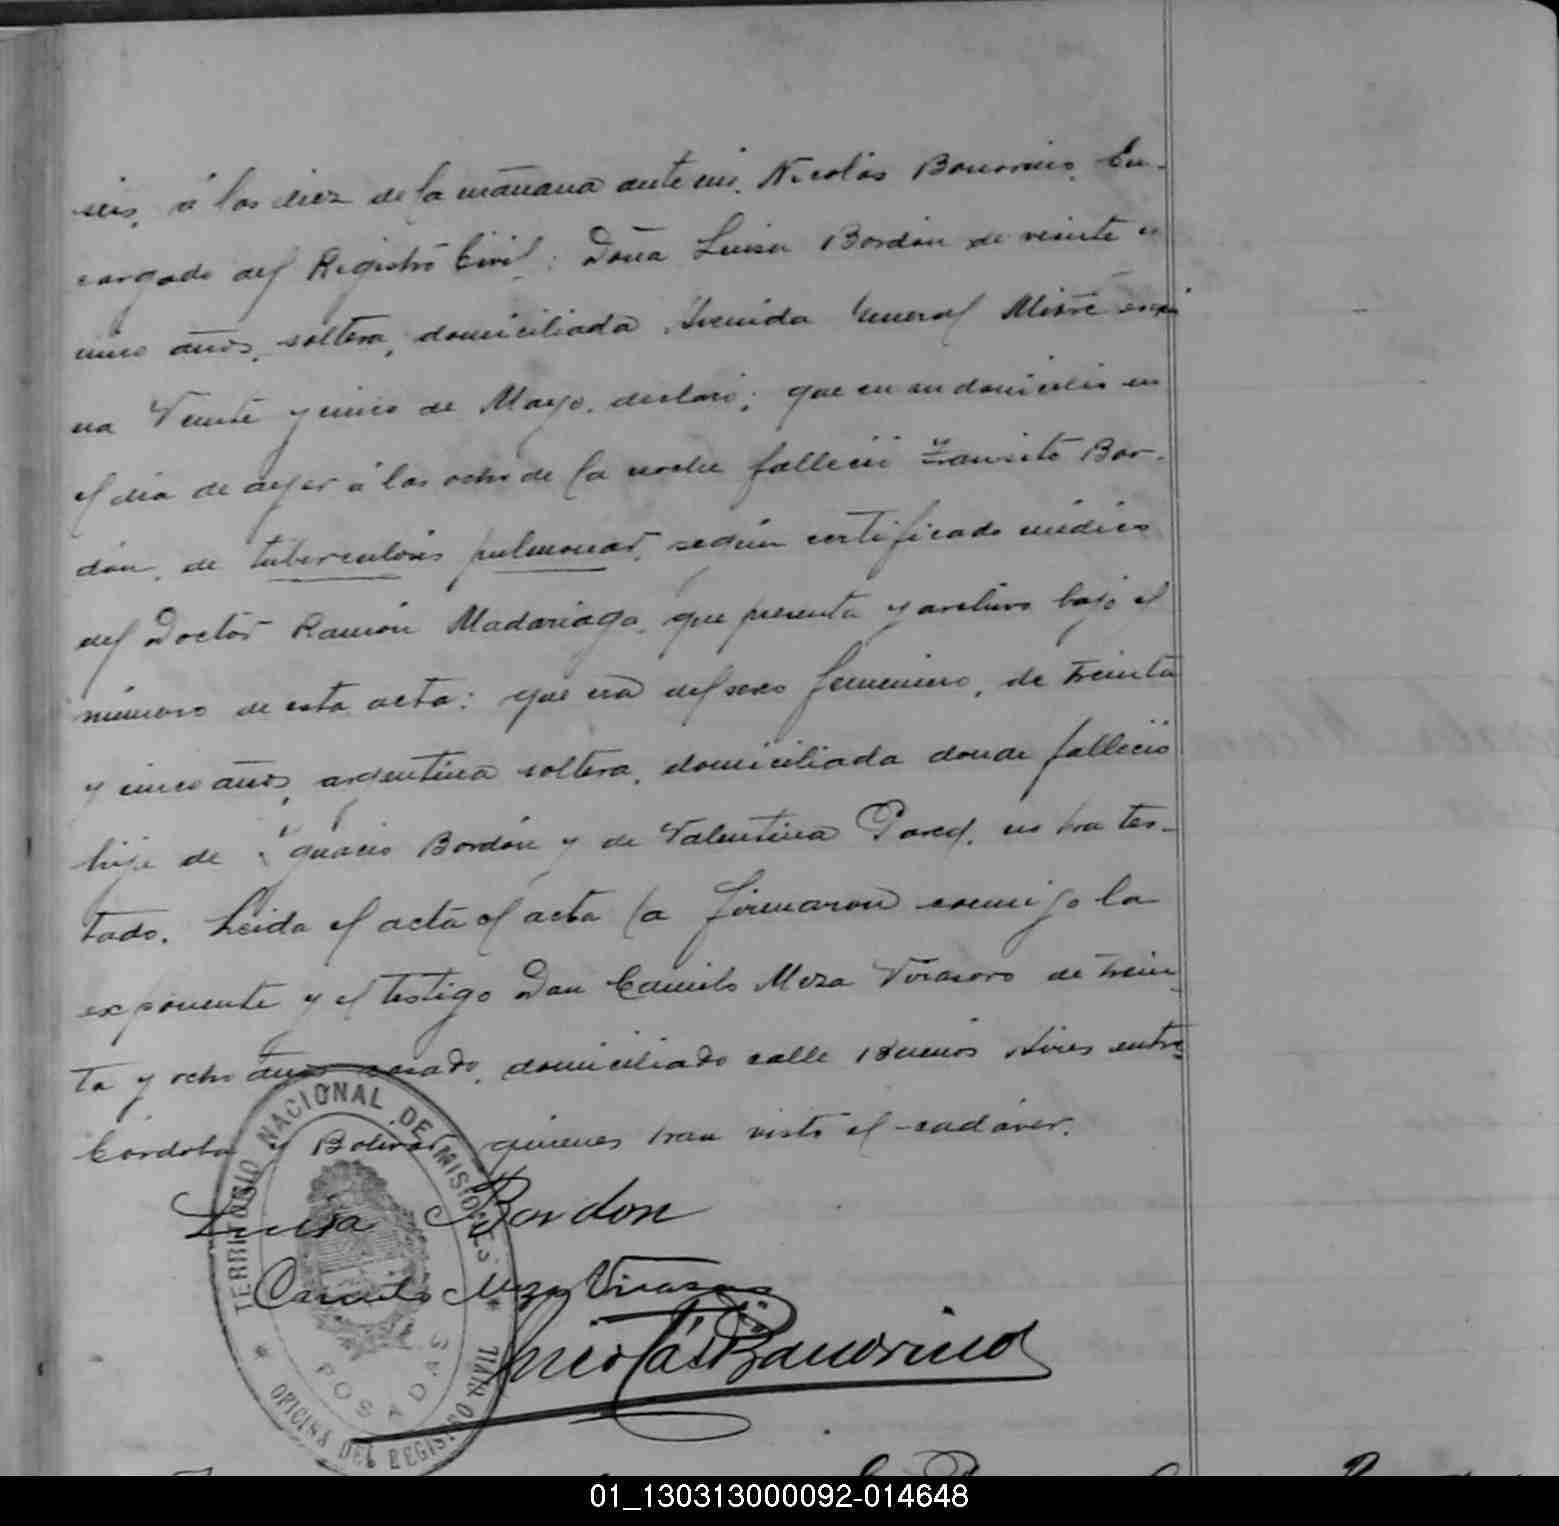 seis, á las diez de la mañana ante mi, Nicolás Bonorino, En-
cargado del Registro Civil: Doña Luisa Bordón de veinte y
cinco años, soltera, domiciliada Avenida General Mitre esqui
na Veinte y cinco de Mayo, declaró: que en su domicilio en
el dia de ayer á las ocho de la noche falleció Transito Bor-
dón, de tuberculosis pulmonar, según certificado médico
del Doctor Ramón Madariaga, que presenta y archivo bajo el
número de esta acta: que era del sexo femenino, de treinta
y cinco años, argentina soltera, domiciliada donde falleció
hija de Ignacio Bordón y de Valentina no ha tes-
tado. Leida el acta el acta la firmaron conmigo la
exponente y el testigo Don Camilo Meza Virasoro de trein
ta y ocho años casado, domiciliado calle Buenos Aires entre
Córdoba y Bolivar, quienes han visto el cadáver.
Luisa Bordon
Camilo Meza Virasoro
Nicolás Bonorino
TERRITORIO NACIONAL DE MISIONES
POSADAS
OFICINA DEL REGISTRO CIVIL
01_130313000092-014648